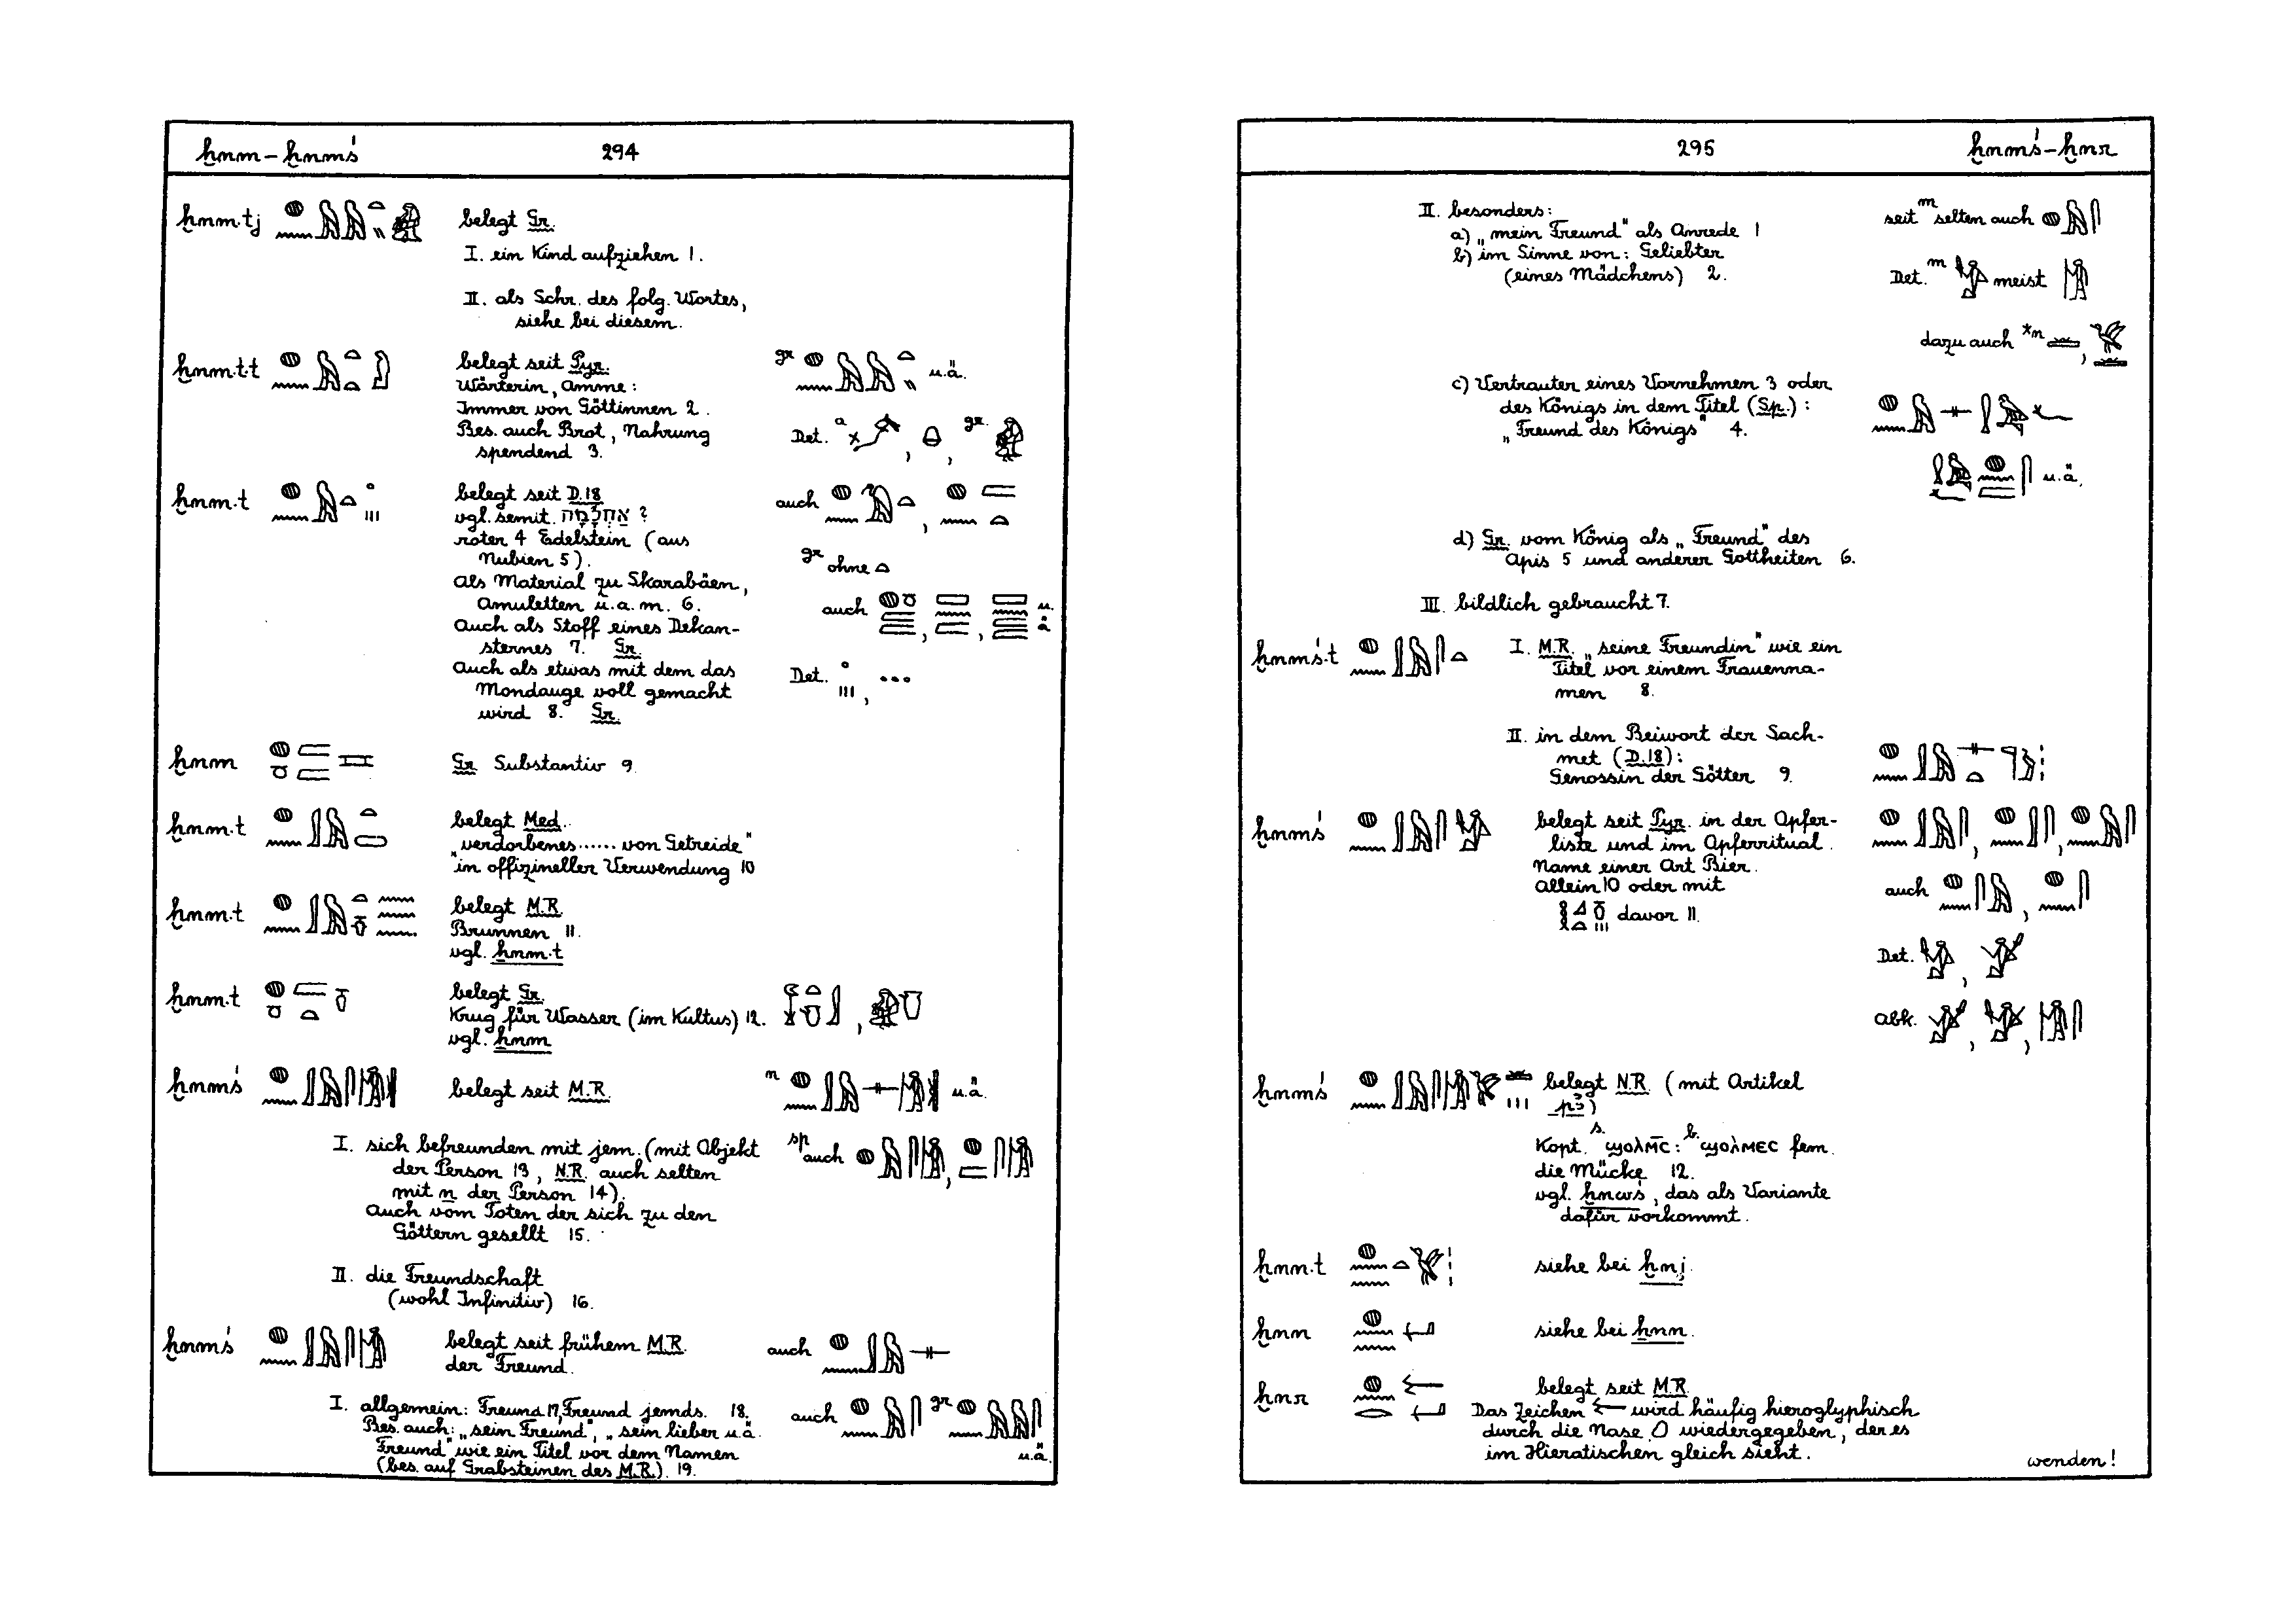 ḫnm – ḫnmś 294
ḫnm·tj belegt Gr.
I. ein Kind aufziehen 1.
II. als Schr. des folg. Wortes,
siehe bei diesem.
ḫnm·t·t belegt seit Pyr. gr u.ä.
Wärterin, Amme:
Immer von Göttinnen 2.
Bes. auch Brot, Nahrung Det. a , , gr.
spendend 3.
ḫnm·t belegt seit D.18 auch ,
vgl. semit. אַחְלָמָה ?
roter 4 Edelstein (aus
Nubien 5). gr ohne
Als Material zu Skarabäen,
Amuletten u.a.m. 6. auch , , u.ä
Auch als Stoff eines Dekan-
sternes 7. Gr.
Auch als etwas mit dem das Det. ,
Mondauge voll gemacht
wird 8. Gr.
ḫnm Gr Substantiv 9.
ḫnm·t belegt Med.
„verdorbenes...... von Getreide"
in offizineller Verwendung 10
ḫnm·t belegt M.R.
Brunnen 11.
vgl. ẖnm·t
ḫnm·t belegt Gr.
Krug für Wasser (im Kultus) 12. ,
vgl. ẖnm
ḫnmś belegt seit M.R. n u.ä.
I. sich befreunden mit jem. (mit Objekt sp auch ,
der Person 13, N.R. auch selten
mit n der Person 14).
Auch vom Toten der sich zu den
Göttern gesellt 15.
II. die Freundschaft
(wohl Infinitiv) 16.
ḫnmś belegt seit frühem M.R. auch
der Freund.
I. allgemein: Freund 17, Freund jemds. 18. auch gr
Bes. auch: „sein Freund", „sein lieber u.ä.
Freund" wie ein Titel vor dem Namen u.ä.
(bes. auf Grabsteinen des M.R.). 19.
295 ḫnmś – ḫnr
II. besonders: seit m selten auch
a) „mein Freund" als Anrede 1
b) im Sinne von: Geliebter
(eines Mädchens) 2. Det. m meist
dazu auch *m ,
c) Vertrauter eines Vornehmen 3 oder
des Königs in dem Titel (Sp.):
„Freund des Königs" 4.
u.ä.
d) Gr. vom König als „Freund" des
Apis 5 und anderer Gottheiten 6.
III. bildlich gebraucht 7.
ḫnmś·t I. M.R. „seine Freundin" wie ein
Titel vor einem Frauenna-
men 8.
II. in dem Beiwort der Sach-
met (D.18):
Genossin der Götter 9.
ḫnmś belegt seit Pyr. in der Opfer- , ,
liste und im Opferritual.
Name einer Art Bier.
Allein 10 oder mit auch ,
davor 11.
Det. ,
Abk. , ,
ḫnmś belegt N.R. (mit Artikel
pꜣ)
Kopt. s. ϣⲟⲗⲙ̄ⲥ : b. ϣⲟⲗⲙⲉⲥ fem.
die Mücke 12.
vgl. ḫnwś, das als Variante
dafür vorkommt.
ḫnn·t siehe bei ḫnj.
ḫnn siehe bei ẖnn.
ḫnr belegt seit M.R.
Das Zeichen wird häufig hieroglyphisch
durch die Nase wiedergegeben, der es
im Hieratischen gleich sieht.
wenden!